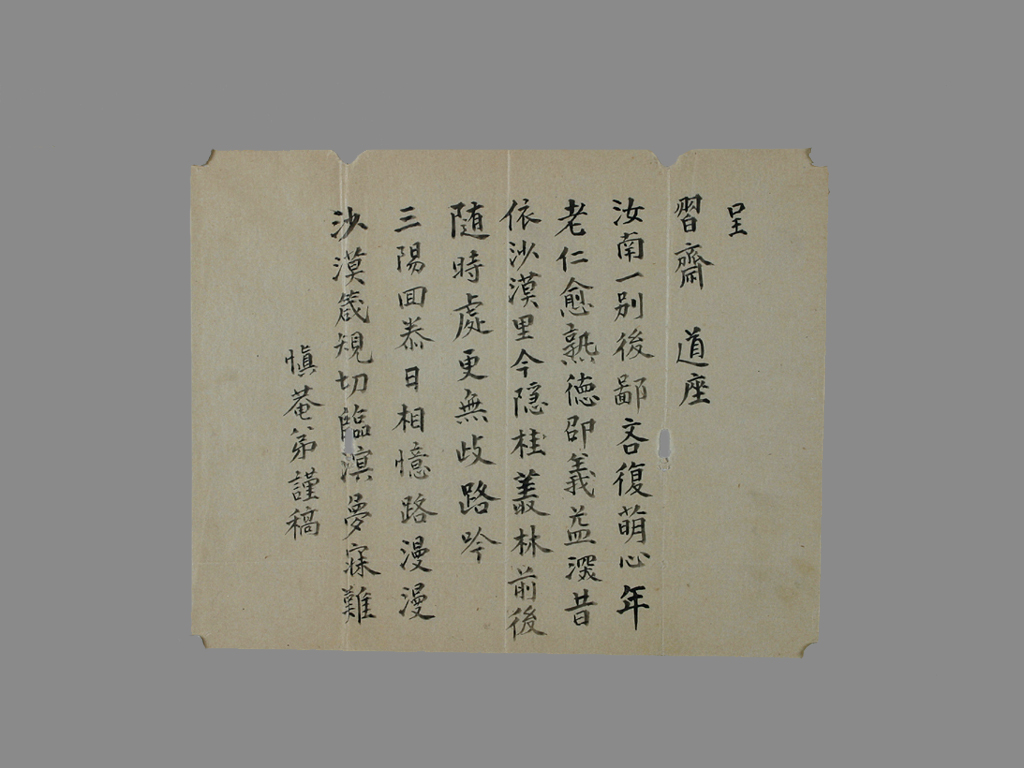 呈
習齋　道座
汝南一別後鄙吝復萌心年
老仁愈熟德卲義益深昔
依沙漠里今隱桂叢林前後
随時處更無歧路吟
三陽回泰日相憶路漫漫
沙漠箴規切臨溟夢寐難
愼菴弟謹稿